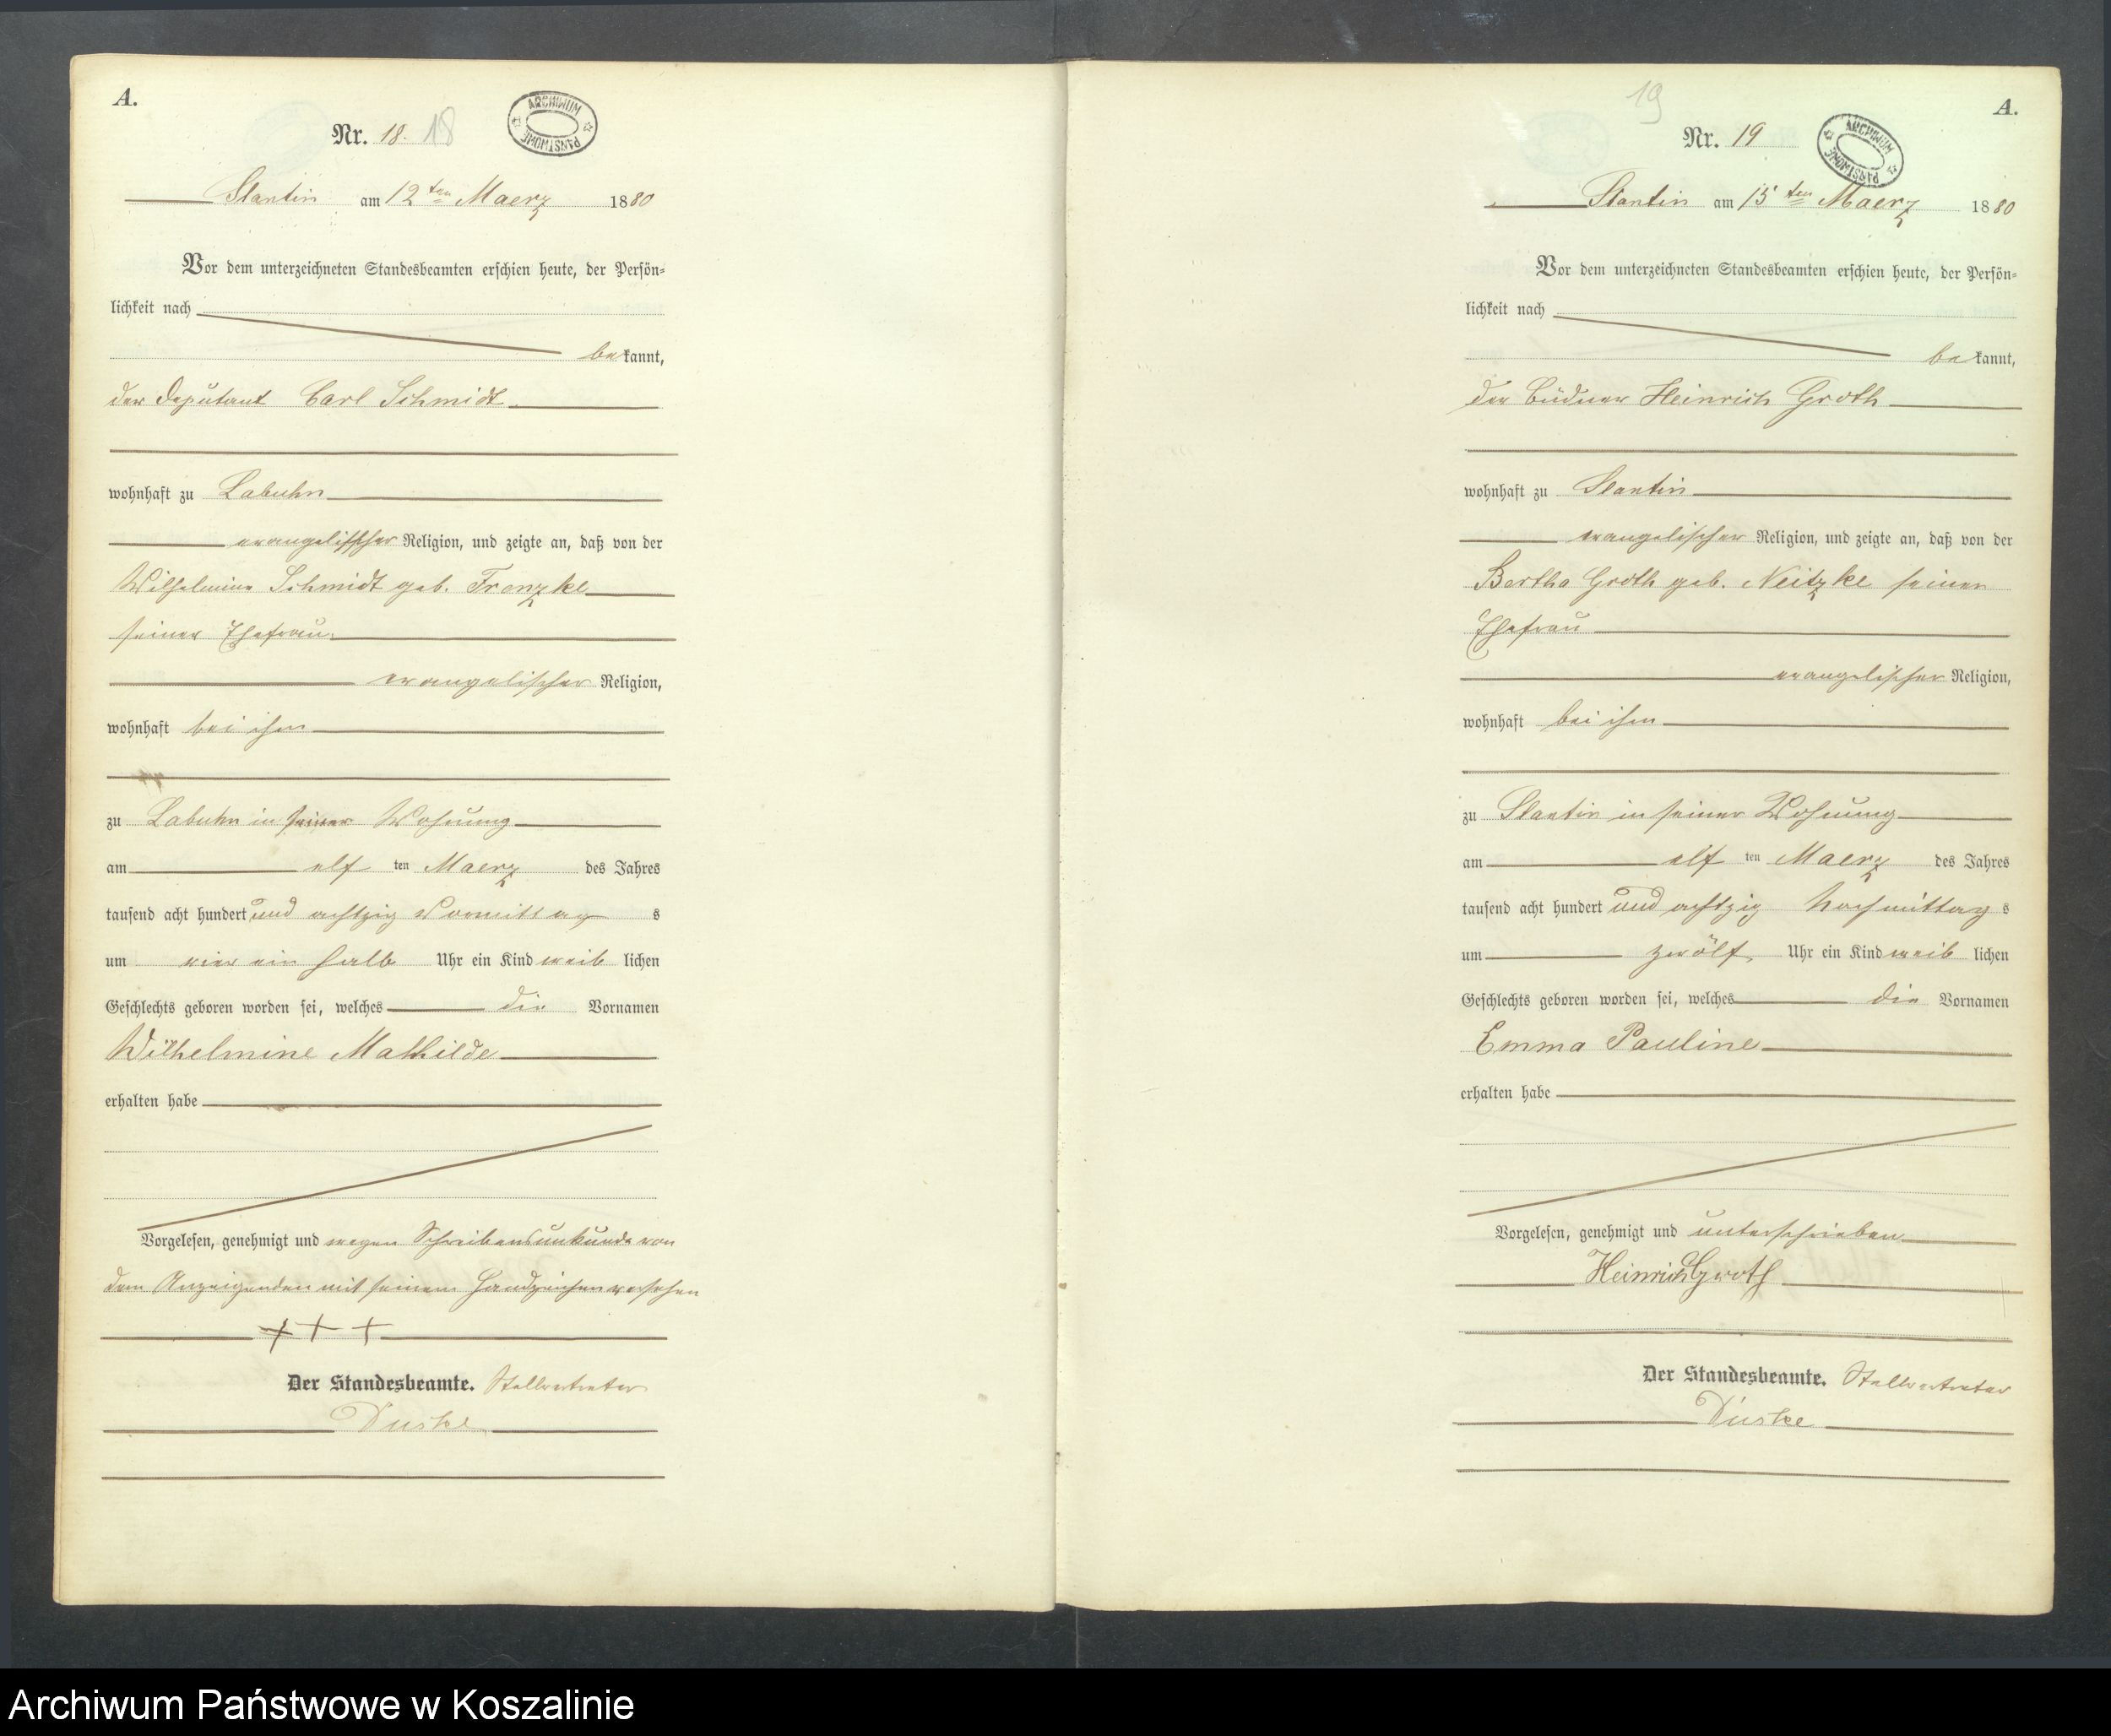 A.
Nr. 18. 18
ARCHIWUM PAŃSTWOWE
Slantin am 12ten Maerz 1880
Vor dem unterzeichneten Standesbeamten erschien heute, der Persön-
lichkeit nach
bekannt,
der Deputant Carl Schmidt
wohnhaft zu Labuhn
evangelischer Religion, und zeigte an, daß von der
Wilhelmine Schmidt geb. Franzke
seiner Ehefrau
evangelischer Religion,
wohnhaft bei ihm
zu Labuhn in seiner Wohnung
am elf ten Maerz des Jahres
tausend acht hundert und achtzig Vormittag s
um vier ein halb Uhr ein Kind weib lichen
Geschlechts geboren worden sei, welches die Vornamen
Wilhelmine Mathilde
erhalten habe
Vorgelesen, genehmigt und wegen Schreibensunkunde von
dem Anzeigenden mit seinem Handzeichen versehen
+ + +
Der Standesbeamte. Stellvertreter
Duske
19
A.
Nr. 19
ARCHIWUM PAŃSTWOWE
Slantin am 15ten Maerz 1880
Vor dem unterzeichneten Standesbeamten erschien heute, der Persön-
lichkeit nach
bekannt,
der Büdner Heinrich Groth
wohnhaft zu Slantin
evangelischer Religion, und zeigte an, daß von der
Bertha Groth geb. Neitzke seiner
Ehefrau
evangelischer Religion,
wohnhaft bei ihm
zu Slantin in seiner Wohnung
am elf ten Maerz des Jahres
tausend acht hundert und achtzig Nachmittag s
um zwölf Uhr ein Kind weib lichen
Geschlechts geboren worden sei, welches die Vornamen
Emma Pauline
erhalten habe
Vorgelesen, genehmigt und unterschrieben
Heinrich Groth
Der Standesbeamte. Stellvertreter
Duske
Archiwum Państwowe w Koszalinie